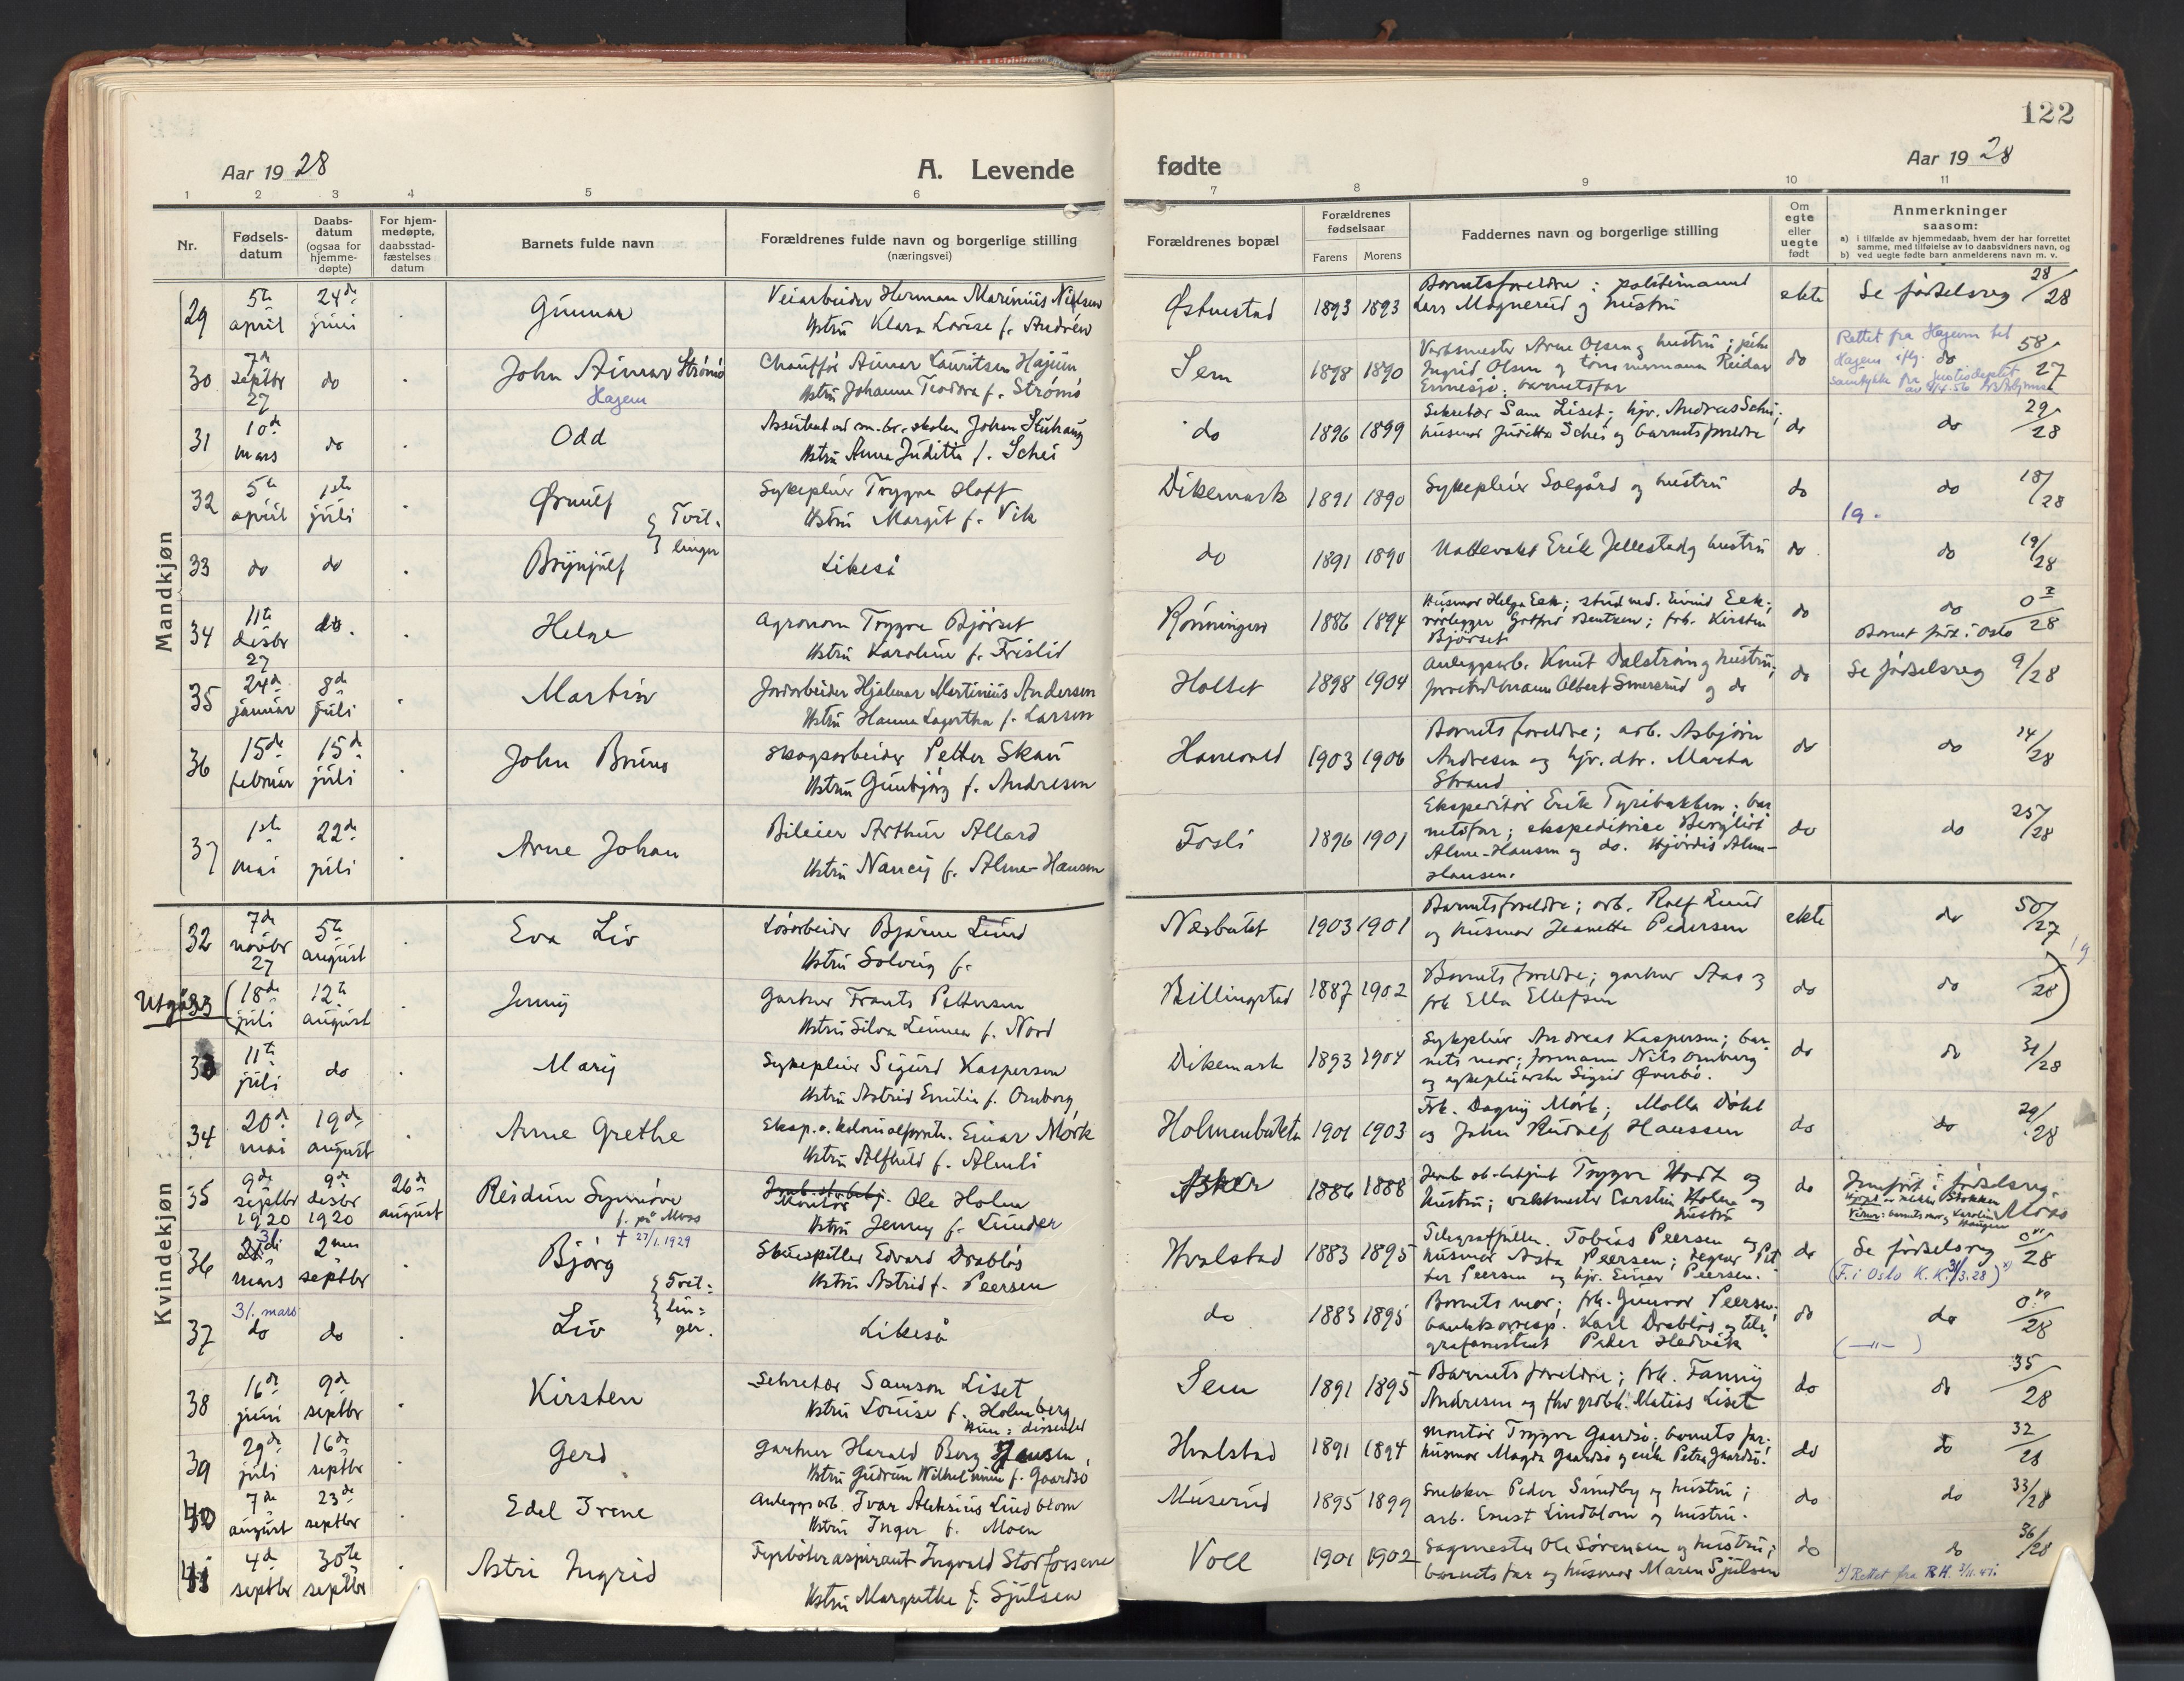 122
Aar 1928
A. Levende
fødte
Aar 1928
1 2 3 4 5 6 7 8 9 10 11
Nr.
Fødsels-
datum
Daabs-
datum
(ogsaa for
hjemme-
døpte)
For hjem-
medøpte,
daabsstad-
fæstelses
datum
Barnets fulde navn
Forældrenes fulde navn og borgerlige stilling
(næringsvei)
Forældrenes bopæl
Forældrenes
fødselsaar
Farens Morens
Faddernes navn og borgerlige stilling
Om
egte
eller
uegte
født
Anmerkninger
saasom:
a) i tilfælde av hjemmedaab, hvem der har forrettet
samme, med tilføielse av to daabsvidners navn, og
b) ved uegte fødte barn anmelderens navn m. v.
Mandkjøn
29 5te april 24de juni Gunnar
Veiarbeider Herman Marinius Nielsen
Hstru Klara Lovise f. Andrén
Østenstad 1893 1893
Barnets foreldre;
Lars Magnerud og hustru
ekte Se fødselsreg 28/28
30 7de septbr 27 do John Aimar Strömö
Hagem
Chauffør Aimar Lauritsen Hajum
Hstru Johanne Teodora f. Strömö
Sem 1898 1890
Verksmester Arne Olsen og hustru; pike
Ingrid Olsen og tømmermann Reidar
barnets far
do
Rettet fra Hagum til
Hagem ifg. do 58/27
samtykke fra justisdeptet
31 10de mars do Odd
Hstru Anna Juditta f. Schei
do 1896 1899
Sekretær Sam Liset; hjv. Andreas Schei;
husmor Juditta Schei og barnets foreldre
do do 29/28
32 5te april 1ste juli Ørnulf
Tvil-
linger
Sykepleier Trygve Hoff
Hstru Margit f. Vik
Dikemark 1891 1890
Sykepleier Solgård og hustru
do do 18/28
19.
33 do do Brynjulf
Likeså
do 1891 1890
Nattevakt Erik Jellestad og hustru
do do 19/28
34 11te desbr 27 do. Helge
Agronom Trygve Bjørset
Hstru Karoline f. Frislid
Rønningen 1886 1894
Husmor Helga Eek; stud. med. Eivind Eek;
rørlegger Gotfred Bentzen; frk. Kirsten
Bjørset
do do 0/28
Barnet født i Oslo
35 24de januar 8de juli Martin
Jordarbeider Hjalmar Martinius Andersen
Hstru Hanna Lagertha f. Larsen
Holtet 1898 1904
Anleggsarb. Knut Dalstrøm og hustru;
Albert Smerud og do
do Se fødselsreg 9/28
36 15de februar 15de juli John Bruno
Skogsarbeider Petter Skau
Hstru Gunbjørg f. Andresen
Hanevold 1903 1906
Barnets foreldre; arb. Asbjørn
Andresen og hjv. dtr. Marta
Strand
do do 14/28
37 1ste mai 22de juli Arne Johan
Bileier Arthur Allard
Hstru Nancy f. Alme-Hansen
Fosli 1896 1901
Ekspeditør Erik Tyribakken; bar
netsfar; ekspeditrise Bergliot
Alme-Hansen og do. Hjørdis Alm-
Hansen.
do do 25/28
Kvindekjøn
32 7de novbr 27 5te august Eva Liv
Løsarbeider Bjarne Lund
Hstru Solveig f.
Næsbutet 1903 1901
Barnets foreldre; arb. Rolf Lund
og husmor Jeanette Pedersen
ekte do 50/27
Utgår
33 18de juli 12te august Jenny
Gartner Frants Pettersen
Hstru Silva Linnea f. Nord
Billingstad 1887 1902
Barnets foreldre; gartner Aas og
frk Ella Ellefsen
do do /28
33 11te juli do Mary
Sykepleier Sigurd Kaspersen
Hstru Astrid Emilie f. Ornborg
Dikemark 1893 1904
Sykepleier Andreas Kaspersen; bar-
nets mor; formann Nils Ornburg
og sykepleierske Sigrid Øverbø.
do do 31/28
34 20de mai 19de august Anne Grethe
Eksp. o. kolonialforretn. Einar Mörk
Hstru Alfhild f. Almli
Holmenbukta 1901 1903
Frk. Dagny Mörk; Molla Döhl
og John Rudolf Hanssen
do do 29/28
35 9de septbr 1920 9de desbr 1920 26de august Reidun Synnöve
f. på Moss
Ole Holm
Kontor
Hstru Jenny f. Lunder
Asker 1886 1888
Trygve Hodt og
hustru; vaktmester Carsten Holm og
hustru
do Innført i fødselsreg.
Moss
36 31 mars 2nen septbr Bjørg
† 27/1. 1929
Skuespiller Edvard Drabløs
Hstru Astrid f. Peersen
Hvalstad 1883 1895
Telegraffullm. Tobias Peersen og
husmor Asta Peersen; tegner Pet
ter Peersen og hjv. Einar Peersen.
do Se fødselsreg 0/28
(F. i Oslo K. K. 31/3. 28) x)
37 31. mars do do Liv
Tvil-
lin-
ger.
Likeså
do 1883 1895
Barnets mor; frk. Gunvor Peersen;
bankkorresp. Karl Drabløs og tele-
grafassistent Peder Hedvik
do do 0/28
( —"— )
38 16de juni 9de septbr Kirsten
Sekretær Samson Liset
Hstru Louise f. Holmberg
Hun: dissenter
Sem 1891 1895
Barnets foreldre; frk. Fanny
Andresen og Matias Liset
do do 35/28
39 29de juli 16de septbr Gerd
Gartner Harald Berg Jensen,
Hstru Gudrun Wilhelmine f. Gaardsø
Hvalstad 1891 1894
Montør Trygve Gaardsø; barnets far;
husmor Magda Gaardsø og enke Petra Gaardsø.
do do 32/28
40 7de august 23de septbr Edel Irene
Anleggsarb. Ivar Aleksius Lindblom
Hstru Inger f. Moen
Muserud 1895 1899
Snekker Peder Sundby og hustru;
arb. Ernst Lindblom og hustru.
do do 33/28
41 4de septbr 30te septbr Astri Ingrid
Fyrbøteraspirant Ingvald Storfossene
Hstru Margrethe f. Sjulsen
Voll 1901 1902
Sagmester Ole Sørensen og hustru;
barnets far og husmor Maren Sjulsen
do do 36/28
x) Rettet fra R.H. 3/11. 41.